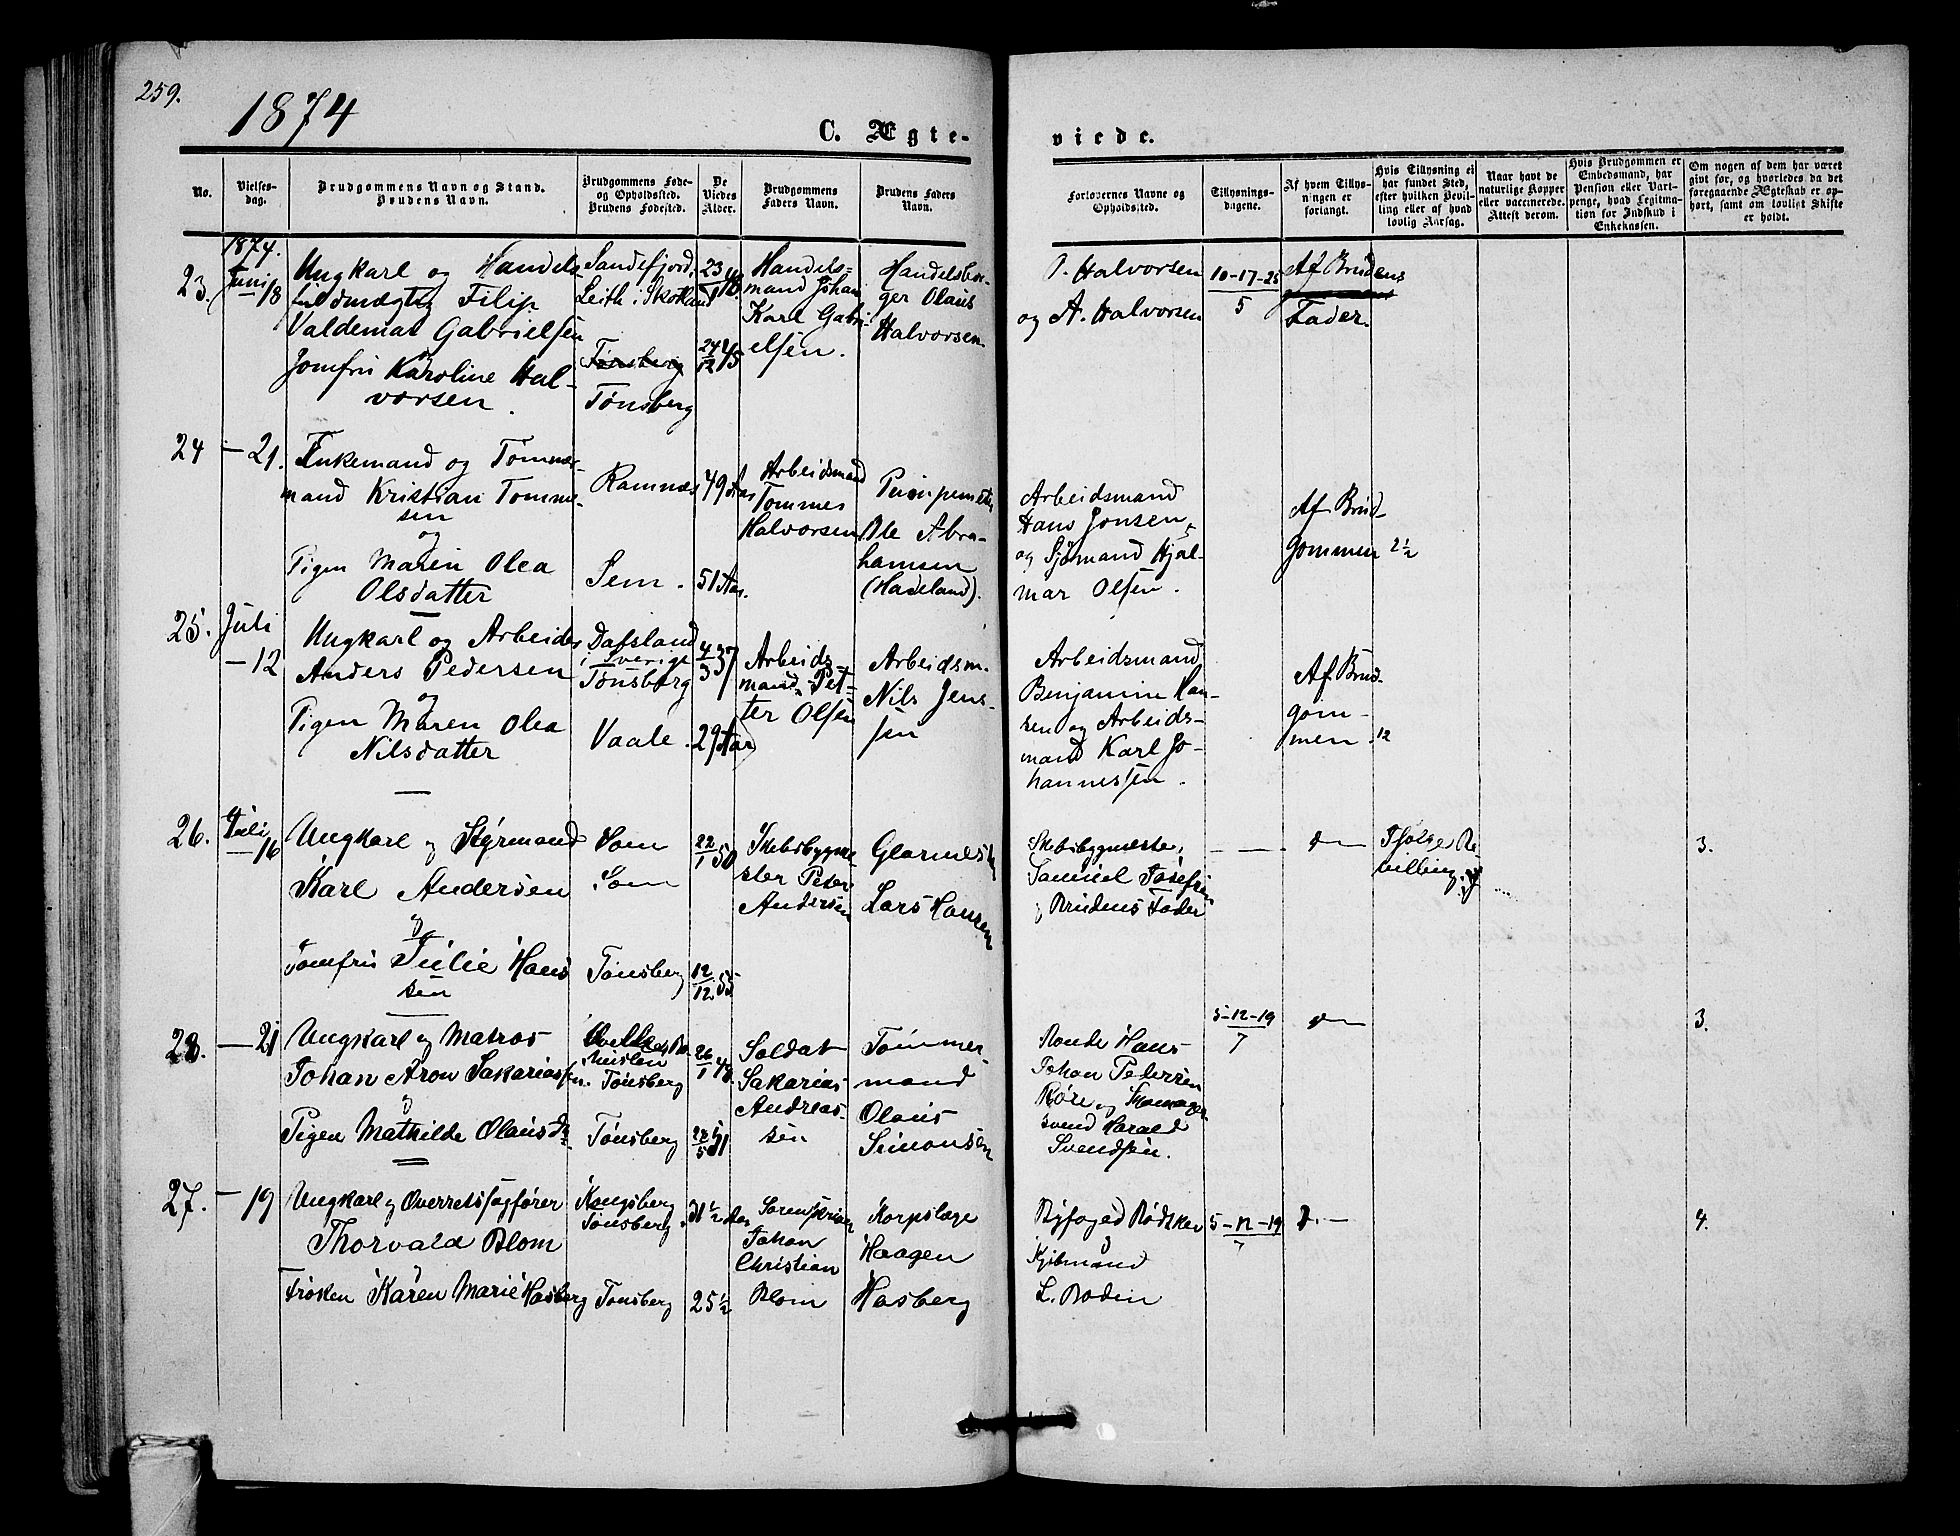 259.
1874
C. Ægte-
viede.
No.
Vielses-
dag.
Brudgommens Navn og Stand.
Brudens Navn.
Brudgommens Føde-
og Opholdssted.
Brudens Fødested.
De
Viedes
Alder.
Brudgommens
Faders Navn.
Brudens Faders
Navn.
Forlovernes Navne og
Opholdssted.
Tillysnings-
dagene.
Af hvem Tillys-
ningen er
forlangt.
Hvis Tillysning ei
har fundet Sted,
efter hvilken Bevil-
ling eller af hvad
lovlig Aarsag.
Naar havt de
naturlige Kopper
eller vaccinerede.
Attest derom.
Hvis Brudgommen er
Embedsmand, har
Pension eller Vart-
penge, hvad Legitima-
tion for Indskud i
Enkekassen.
Om nogen af dem har været
gift før, og hvorledes da det
foregaaende Ægteskab er op-
hørt, samt om lovligt Skifte
er holdt.
1874.
23.
Juni 18
Ungkarl og Handels
fuldmægtig Filip
Valdemar Gabrielsen
Jomfru Karoline Hal-
vorsen.
Sandefjord,
Leith i Skotland
Tønsberg
Tønsberg
23/1 48.
24/12 45
Handels-
mand Johan
Karl Gabri-
elsen.
Handelsbor-
ger Olaus
Halvorsen.
O. Halvorsen
og A. Halvorsen
10-17-25
5
Af Brudens
Fader.
24
– 21.
Enkemand og Tømmer-
mand Kristian Tomme-
sen
og
Pigen Maren Olea
Olsdatter
Ramnæs
Sem.
49 Aar
51 Aar.
Arbeidsmand
Tommes
Halvorsen
Ole Abra-
hamsen
Arbeidsmand
Hans Jonsen,
og Sjømand Hjal-
mar Olsen.
Af Brud-
gommen
2½
25.
Juli
– 12
Ungkarl og Arbeider
Anders Pedersen
og
Pigen Maren Olea
Nilsdatter
Dalsland
i Sverige
Tønsberg
Vaale.
4/3 37
29 Aar
Arbeids-
mand Pet-
ter Olsen
Arbeidsm.
Nils Jens-
sen
Arbeidsmand
Benjamin Han-
sen og Arbeids-
mand Karl Jo-
hannessen.
Af Brud-
gom-
men.
12
26.
Juli 16
Ungkarl og Styrmand
Karl Andersen
og
Jomfru Julie Han-
sen
Sem
Sem
Tønsberg
22/1 50
12/12 55
Skibsbygme-
ster Peter
Andersen
Glarmester
Lars Hansen
Skibsbygmester
Samuel Josefsen
og Brudens Fader
–
Ifølge Be-
villing.
3.
28.
– 21
Ungkarl og Matros
Johan Aron Sakariassen.
og
Pigen Mathilde Olausd.
Tønsberg
Tønsberg
26/1 48.
28/5 51
Soldat
Sakarias
Andreas-
sen
Tømmer-
mand
Olaus
Simonsen
Hans
Johan Petersen
Røre og
svend Harald
Svendsen.
5-12-19
7
3.
27.
– 19
Ungkarl og Overretssagfører
Thorvald Blom
og
Frøken Karen Marie Hasberg
Kongsberg
Tønsberg.
Tønsberg
31½ Aar
25½
Sorenskriver
Johan
Christian
Blom
Korpslæge
Haagen
Hasberg
Byfoged Rødsker
og
Kjøbmand
L. Bodin
5-12-19
7
4.